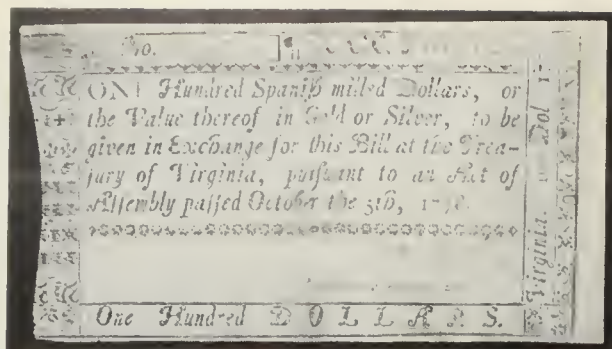 No.
ONE Hundred Spanish milled Dollars, or
the Value thereof in Gold or Silver, to be
given in Exchange for this Bill at the Trea-
sury of Virginia, pursuant to an Act of
Assembly passed October the 5th,
One Hundred DOLLARS.
Virginia. Dol